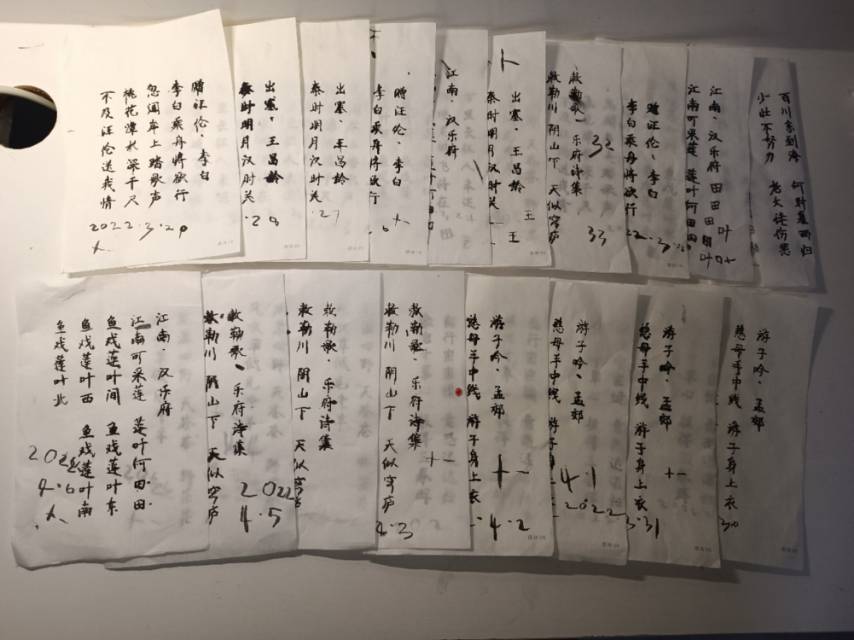 赠汪伦·李白
李白乘舟将欲行
忽闻岸上踏歌声
桃花潭水深千尺
不及汪伦送我情
出塞·王昌龄
秦时明月汉时关
出塞·王昌龄
秦时明月汉时关
赠汪伦·李白
李白乘舟将欲行
江南·汉乐府
出塞·王昌龄
秦时明月汉时关
王
王
敕勒歌·乐府诗集
敕勒川 阴山下 天似穹庐
33
赠汪伦·李白
李白乘舟将欲行
江南·汉乐府
江南可采莲 莲叶何田田
百川东到海 何时复西归
少壮不努力 老大徒伤悲
江南·汉乐府
江南可采莲 莲叶何田·田
鱼戏莲叶间 鱼戏莲叶东
鱼戏莲叶西 鱼戏莲叶南
鱼戏莲叶北
4.6
敕勒歌·乐府诗集
敕勒川 阴山下 天似穹庐
2022
4.5
敕勒歌·乐府诗集
敕勒川 阴山下 天似穹庐
敕勒歌·乐府诗集
敕勒川 阴山下 天似穹庐
游子吟·孟郊
慈母手中线 游子身上衣
4.2
游子吟·孟郊
慈母手中线 游子
4.1
2022
游子吟·孟郊
慈母手中线 游子身上衣
3.31
游子吟·孟郊
慈母手中线 游子身上衣
30